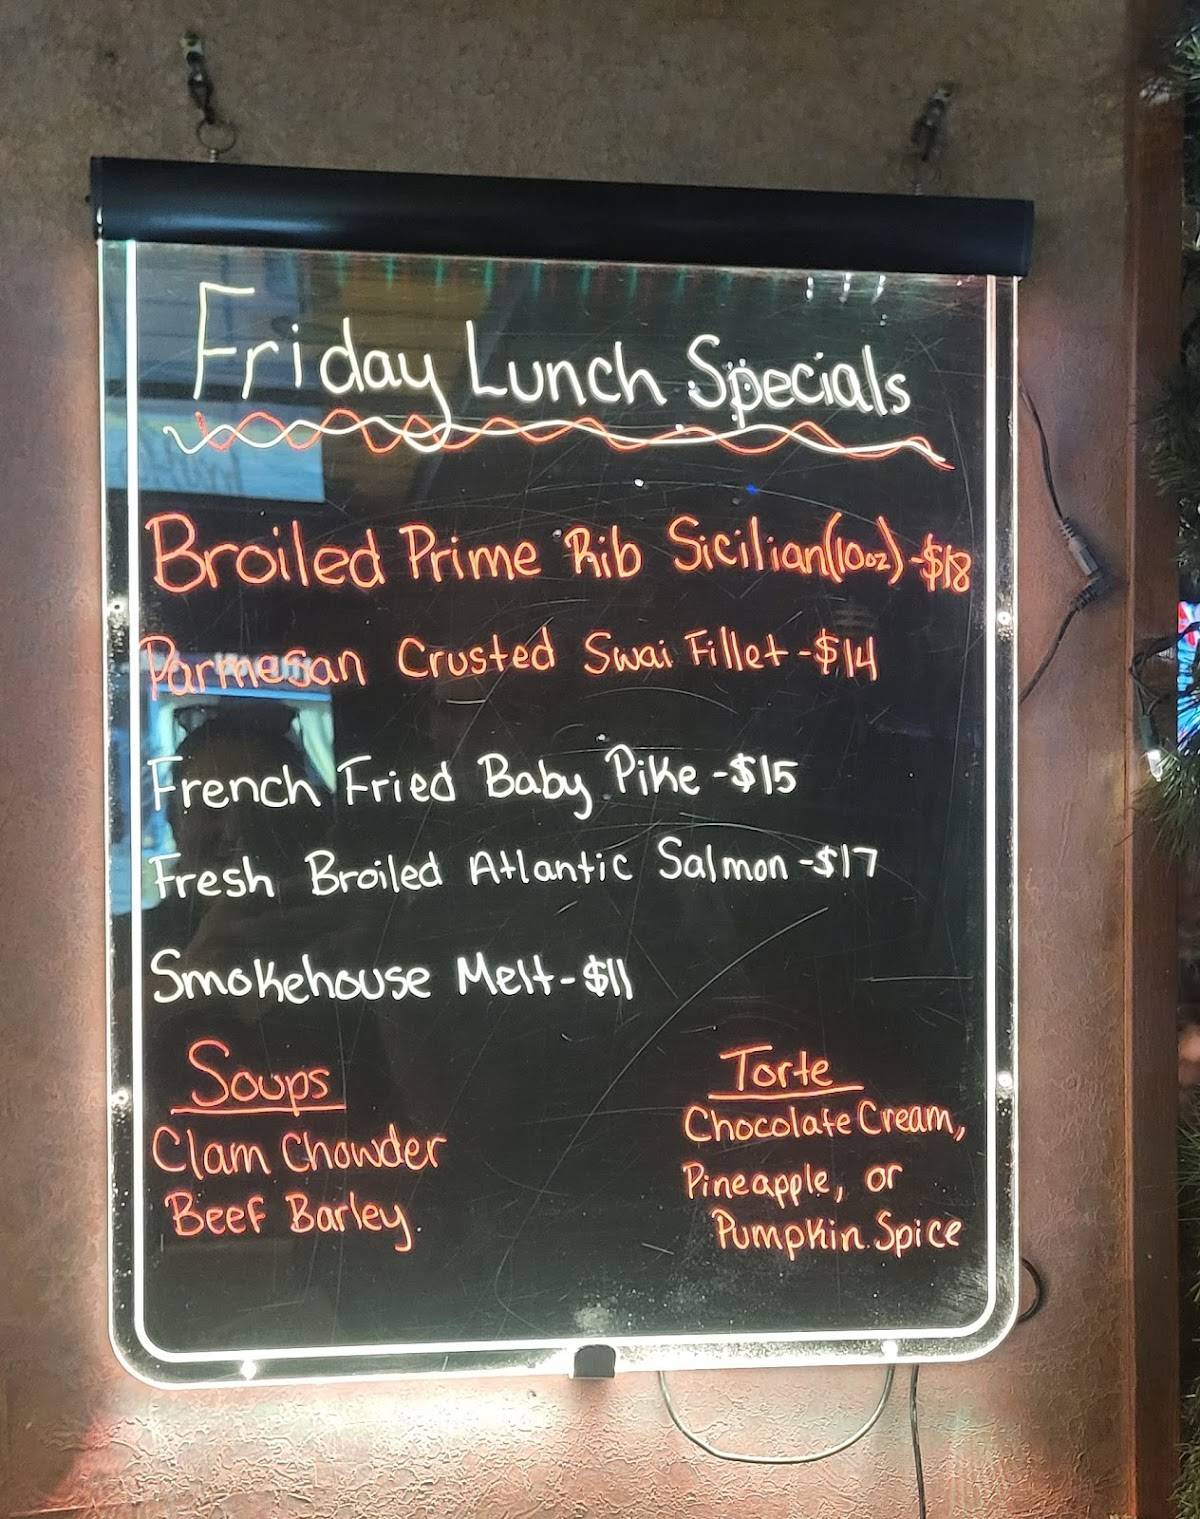 Friday Lunch Specials
Broiled Prime Rib Sicilian(10oz)-$18
Parmesan Crusted Swai Fillet-$14
French Fried Baby Pike-$15
Fresh Broiled Atlantic Salmon-$17
Smokehouse Melt-$11
Soups
Clam Chowder
Beef Barley
Torte
Chocolate Cream,
Pineapple, or
Pumpkin Spice